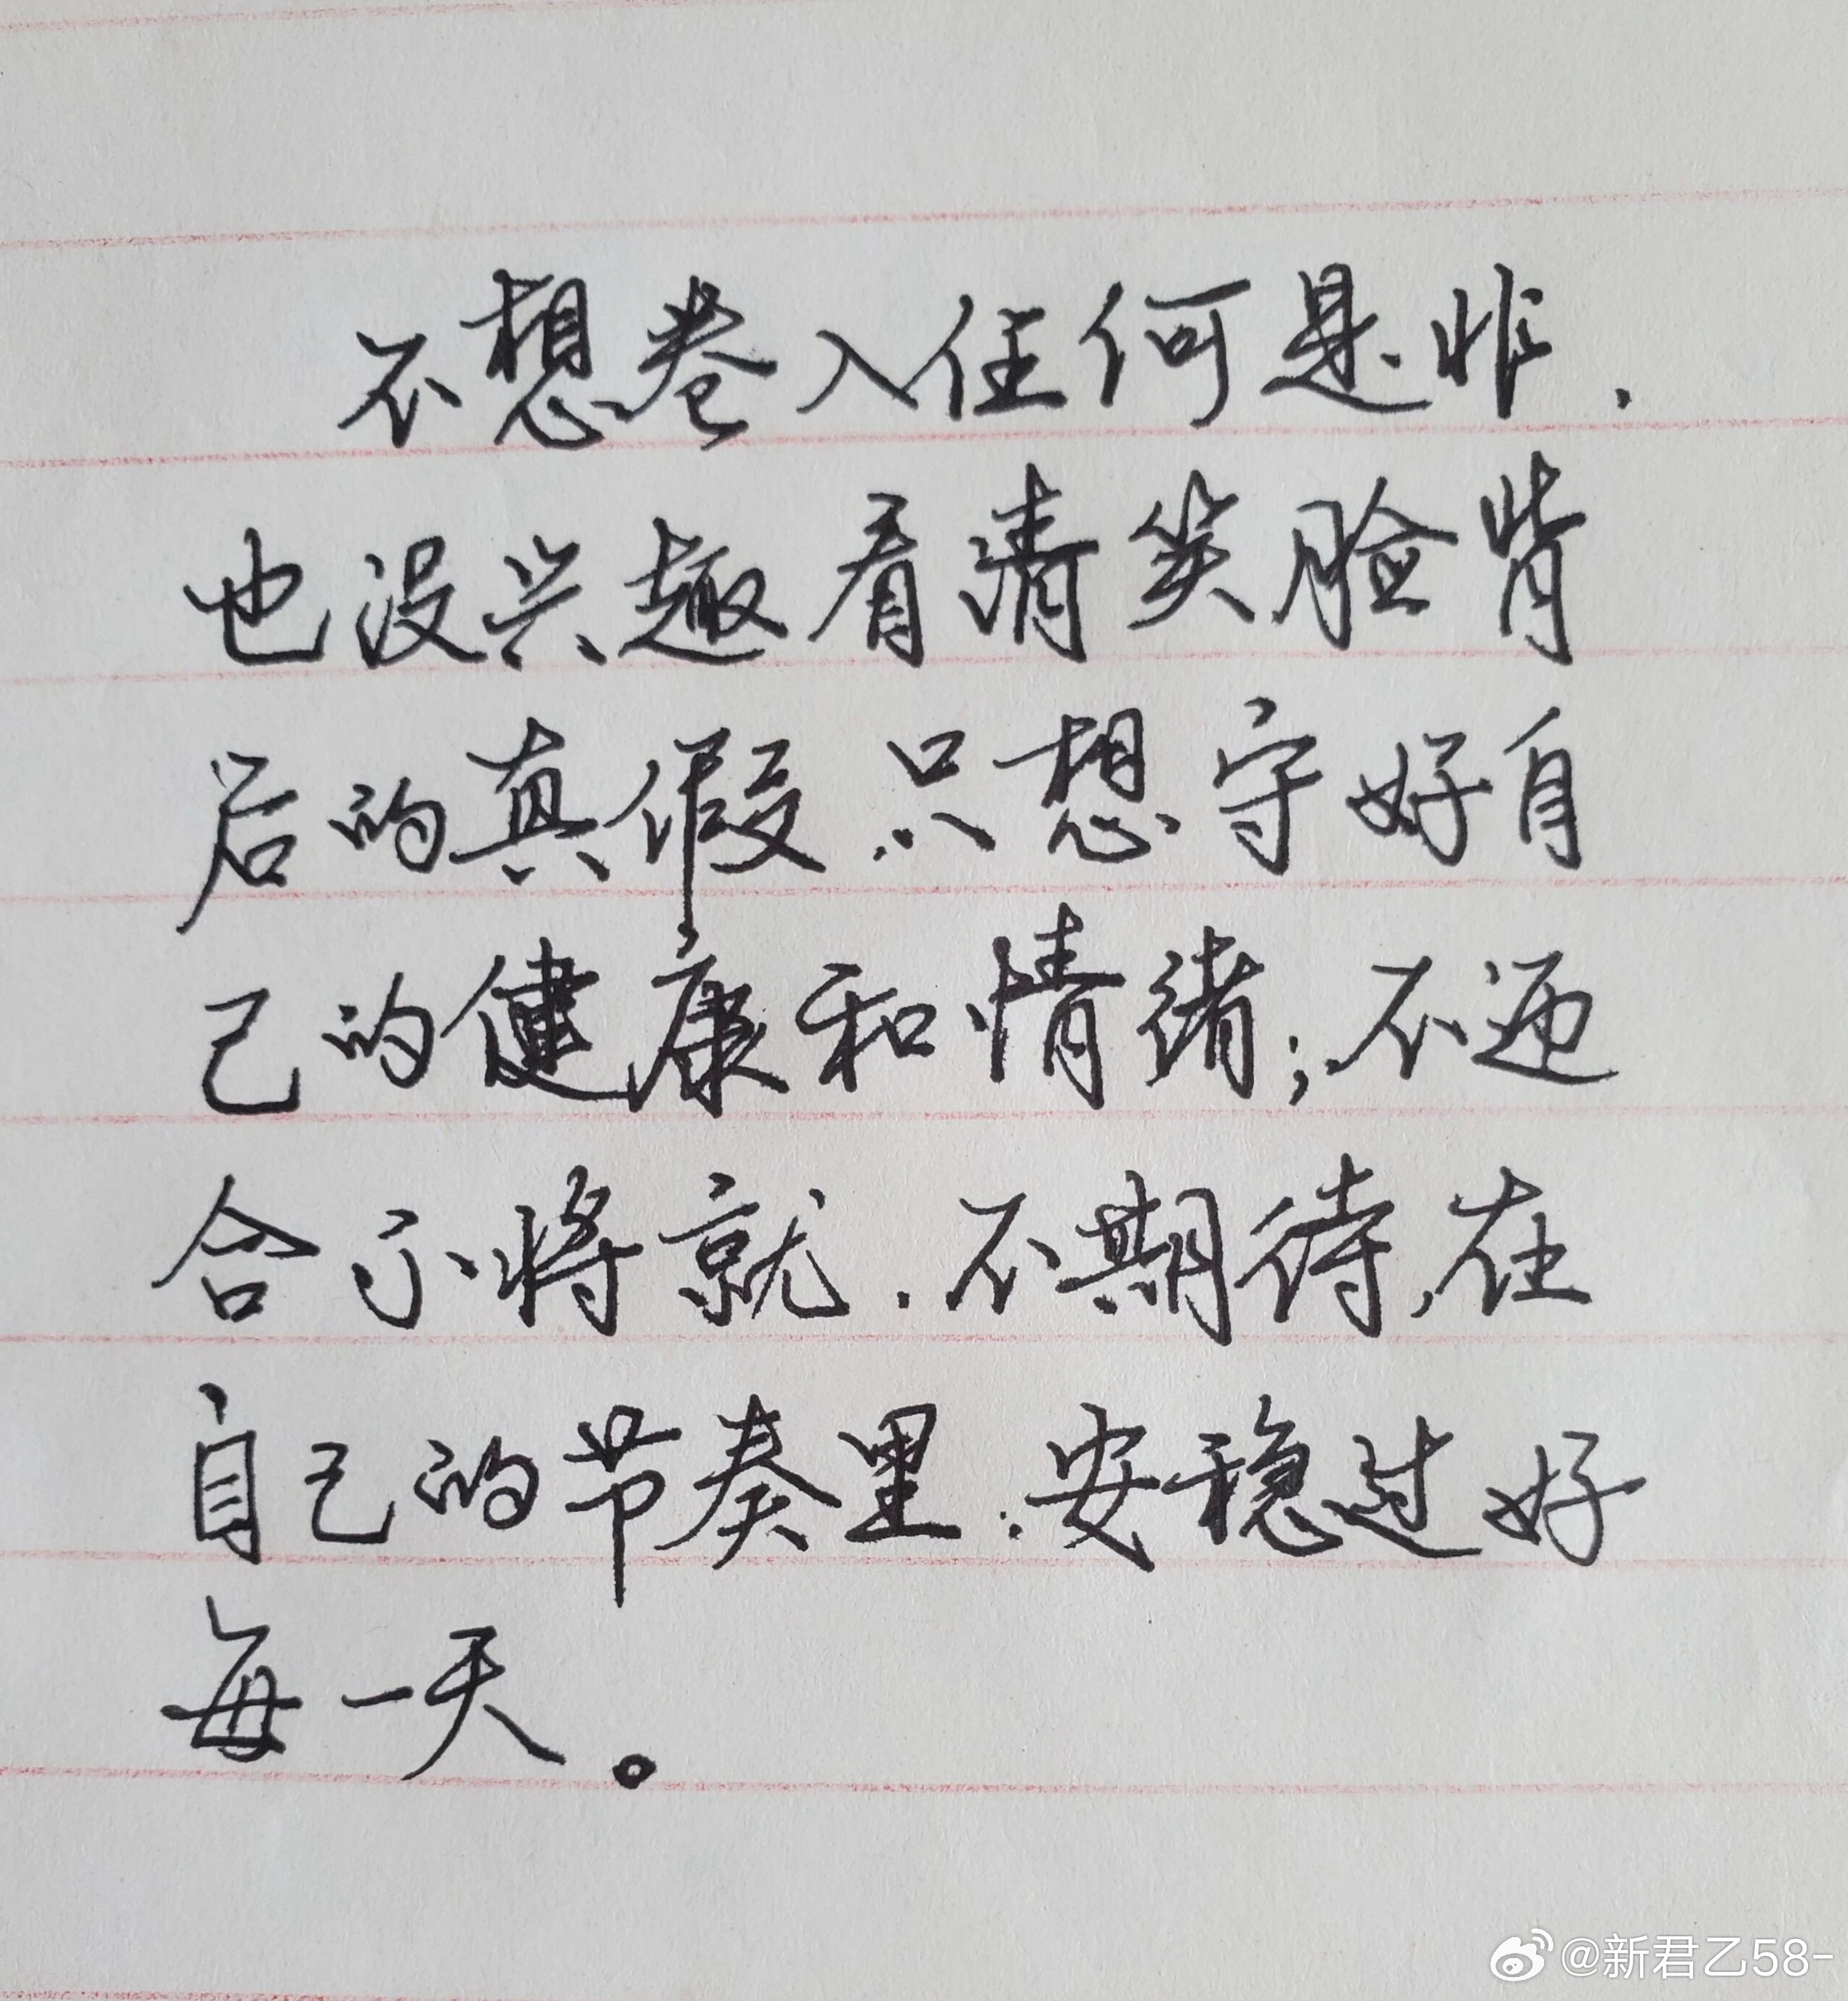 不想卷入任何是非，
也没兴趣看清笑脸背
后的真假，只想守好自
己的健康和情绪；不迎
合不将就，不期待，在
自己的节奏里，安稳过好
每一天。
@新君乙58-